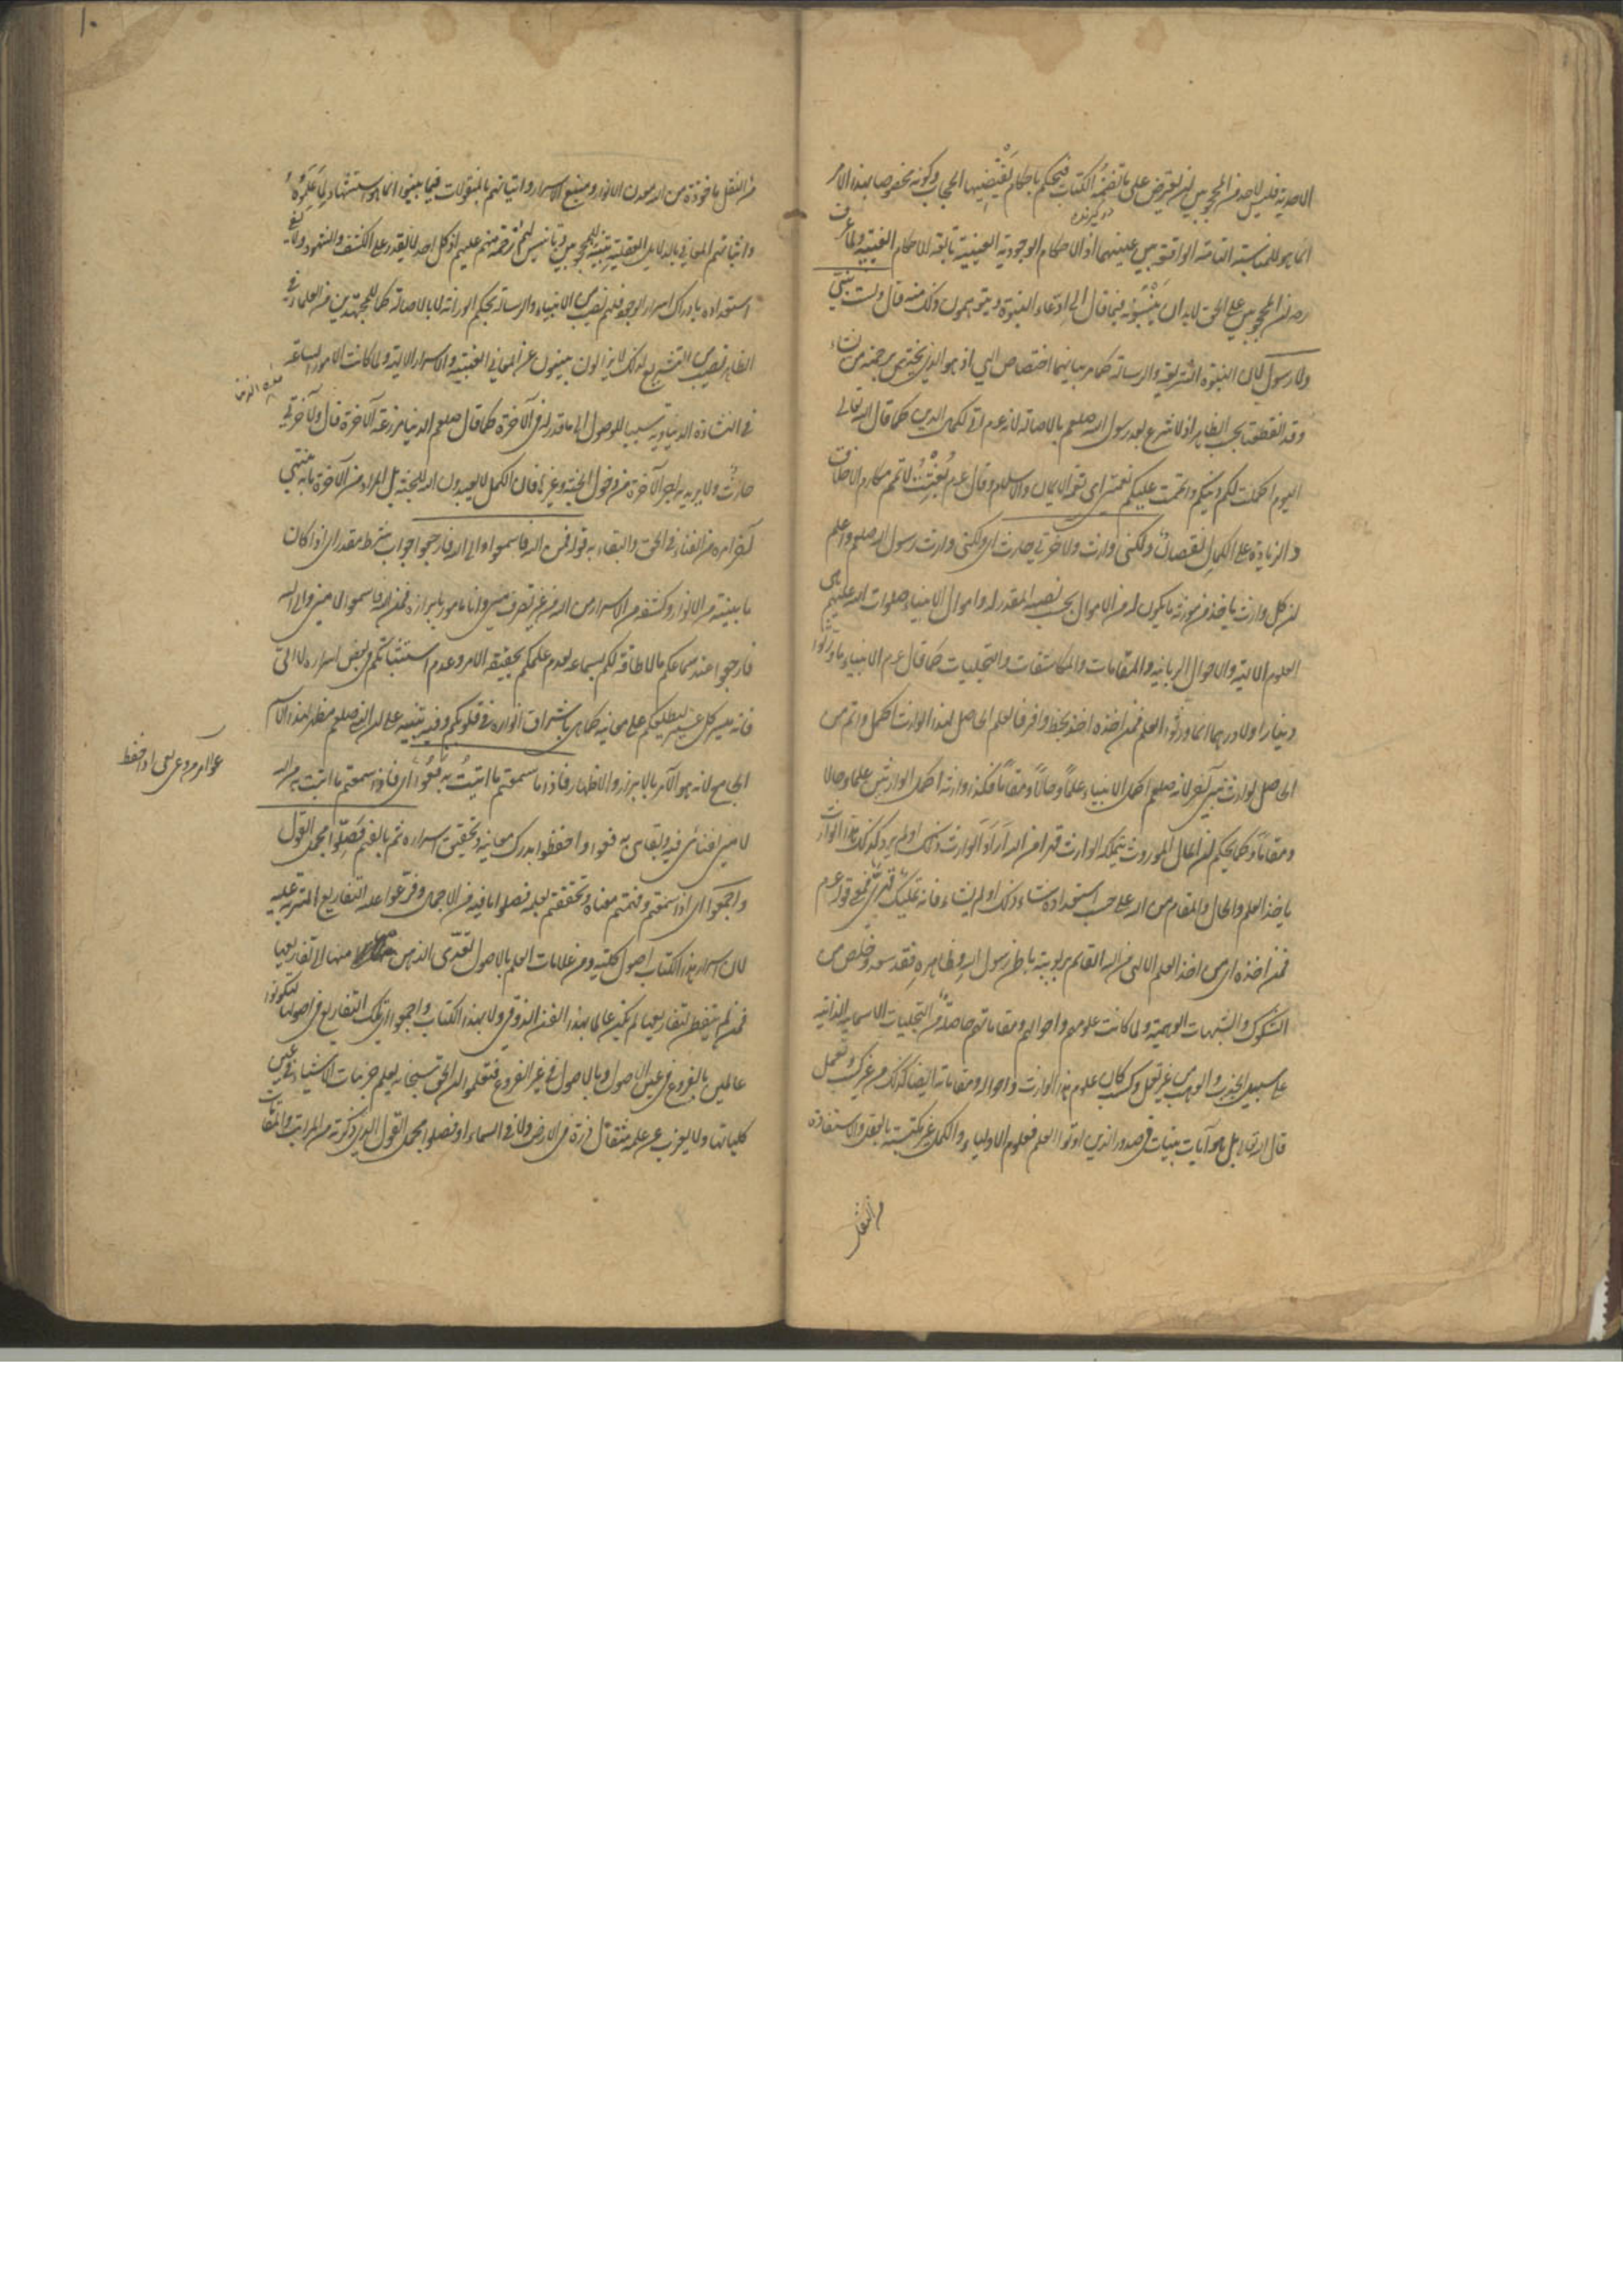 الاحدية فليس لاحد من المحجوبين ان يعترض على ما تضمنه الكتاب فيحكم باحكام يقتضيها الحجاب وكونه مخصوصا بهذا الامر
انما هو للمناسبة التامة الواقعة بين عينيهما اذ الاحكام الوجودية العينية تابعة للاحكام الغيبية ولما عرف
رض ان المحجوبين على الحق لابد ان ينسبونه فيما قال الى ادعاء النبوة ويتوهمون ذلك منه قال ولست بنبي
ولا رسول لان النبوة التشريعية والرسالة كما مر بيانهما اختصاص الهي اذ هو الذي يختص برحمته من يشاء
وقد انقطعتا بحسب الظاهر اذ لا مشرع بعد رسول الله صلعم بالاصالة لانه عم اتى لكمال الدين كما قال الله تعالى
اليوم اكملت لكم دينكم واتممت عليكم نعمتي اى نعمة الايمان والاسلام وقال عم بعثت لاتمم مكارم الاخلاق
والزيادة على الكمال نقصان ولكني وارث ولاخرتي حارث اى ولكني وارث رسول الله صلعم واعلم
ان كل وارث ياخذ من مورثه ما يكون له من الاموال بحسب نصيبه المقدر له واموال الانبياء صلوات الله عليهم هى
العلوم الالهية والاحوال الربانية والمقامات والمكاشفات والتجليات كما قال عم الانبياء ما ورثوا
دينارا ولا درهما انما ورثوا العلم فمن اخذه اخذ بحظ وافر فالعلم الحاصل لهذا الوارث اكمل واتم من
الحاصل لوارث نبي آخر لانه صلعم اكمل الانبياء علما وحالا ومقاما فكذا وارثه اكمل الوارثين علما وحالا
ومقاما وكما يحكم ان المال الموروث يتملكه الوارث قهرا من الله اراد الوارث ذلك او لم يرد كذلك هذا الوارث
ياخذ العلم والحال والمقام من الله على حسب استعداده شاء ذلك او لم يشاء فانه تمليك قهري فمعنى قوله عم
فمن اخذه اى من اخذ العلم الالهى من الله القائم بربوبيته باطن رسول الله وظاهره فقد سعد وخلص من
الشكوك والشبهات الوهمية ولما كانت علومهم واحوالهم ومقاماتهم حاصلة من التجليات الاسمائية الذاتية
على سبيل الجذب والوهب من غير تعمل وكسب كان علوم هذا الوارث واحواله ومقاماته ايضا كذلك من غير كسب وتعمل
قال الله تعالى بل هو آيات بينات فى صدور الذين اوتوا العلم فعلوم الاولياء والكمل غير مكتسبة بالعقل والاستفادة
من النقل
من النقل ماخوذة من الله معدن الانوار ومنبع الاسرار واتيانهم بالمنقولات فيما بينوا انما هو استشهاد لما علموه
واثباتهم المعاني بالدلايل العقلية تنبيه للمحجوبين وتانيس لهم رحمة منهم عليهم اذ كل احد لا يقدر على الكشف والشهود ولا يفى
استعداده بادراك اسرار الوجود فلهم نصيب من الانبياء والرسالة بحكم الوراثة لا بالاصالة كما للمجتهدين من العلماء فى
الظاهر نصيب من التشريع لذلك لا يزالون ينبئون عن المعاني الغيبية والاسرار الالهية ولما كانت الامور السابقة
فى النشاة الدنياوية سببا للوصول الى ما قدر له فى الآخرة كما قال صلعم الدنيا مزرعة الآخرة قال ولآخرتي
حارث ولا يريد به اجر الآخرة من دخول الجنة وغيرها فان الكمل لا يعبدون الله للجنة بل المراد من الآخرة ما به ينتهى
آخر امره من الفناء فى الحق والبقاء به قوله فمن الله فاسمعوا والى الله فارجعوا جواب شرط مقدر اى اذا كان
ما بينته من الانوار وكشفته من الاسرار من الله من غير تصرف منى وانا مامور بابرازه فمن الله فاسمعوا لا منى والى الله
فارجعوا عند سماعكم ما لا طاقة لكم بسماعه لعدم علمكم بحقيقة الامر وعدم استيناسكم فى بعض اسراره لا الى
فانه ميسر كل عسير ليطلعكم على معانيه كما هى باشراق انواره فى قلوبكم وفيه تنبيه على انه ايضا صلعم مظهر لهذا الاسم
الجامع لانه هو الآمر بالابراز والاظهار فاذا ما سمعتم ما اتيت به فعوا اى فاذا سمعتم ما اتيت به من الله
لا منى لفنائى فيه وبقائى به فعوا واحفظوا بدرك معانيه وتحقيق اسراره ثم بالفهم فصلوا مجمل القول
واجمعوا اى اذا سمعتم وفهمتم معناه وتحققتم بعلمه فصلوا ما فيه من الاجمال وفرعوا عليه التفاريع المترتبة عليه
لان اسرار هذا الكتاب اصول كلية ومن علامات العلم بالاصول تعدى الذهن منها الى تفاريعها
فمن لم يتفطن لتفاريعها لم يكن عالما بهذا الفن الذوقى ولا بهذا الكتاب واجمعوا تلك التفاريع فى اصولها لتكونوا
عالمين بالفروع فى عين الاصول وبالاصول فى غير الفروع فتعلموا ان الحق سبحانه يعلم جزئيات الاشياء فى عين
كلياتها ولا يعزب عن علمه مثقال ذرة فى الارض ولا فى السماء او فصلوا مجمل القول الذى ذكرته من المراتب والمقامات